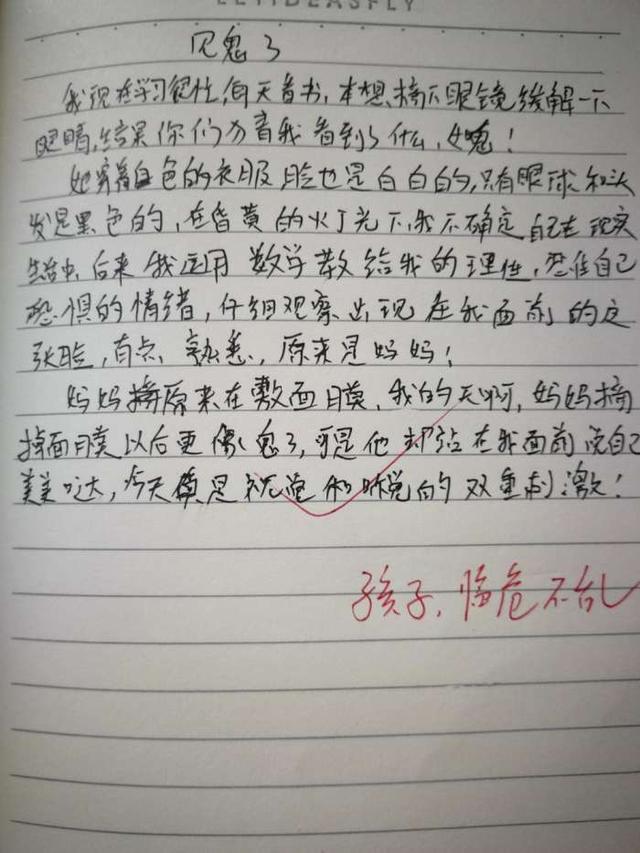 LETIDEASFLY
见鬼了
我现在学习很忙,每天看书,本想摘下眼镜缓解一下
眼睛,结果你们方看我看到了什么,女鬼!
她穿着白色的衣服脸也是白白的,只有眼球和头
发是黑色的,在昏黄的灯光下,我不确定自己在现实
生活中,后来我运用数学教给我的理性,忍住自己
恐惧的情绪,仔细观察出现在我面前的这
张脸,有点熟悉,原来是妈妈!
妈妈原来在敷面膜,我的天啊,妈妈摘
掉面膜以后更像鬼了,可是他却站在我面前说自己
美美哒,今天真是视觉和听觉的双重刺激!
孩子,临危不乱